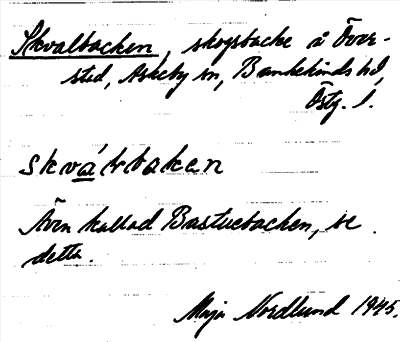 Skvalbacken, skogsbacke å Över-
stad, Askeby sn, Bankekinds hd,
Östg. l.
skválbakan
Även kallad Bastuebacken, se
detta.
Maja Nordlund 1945.